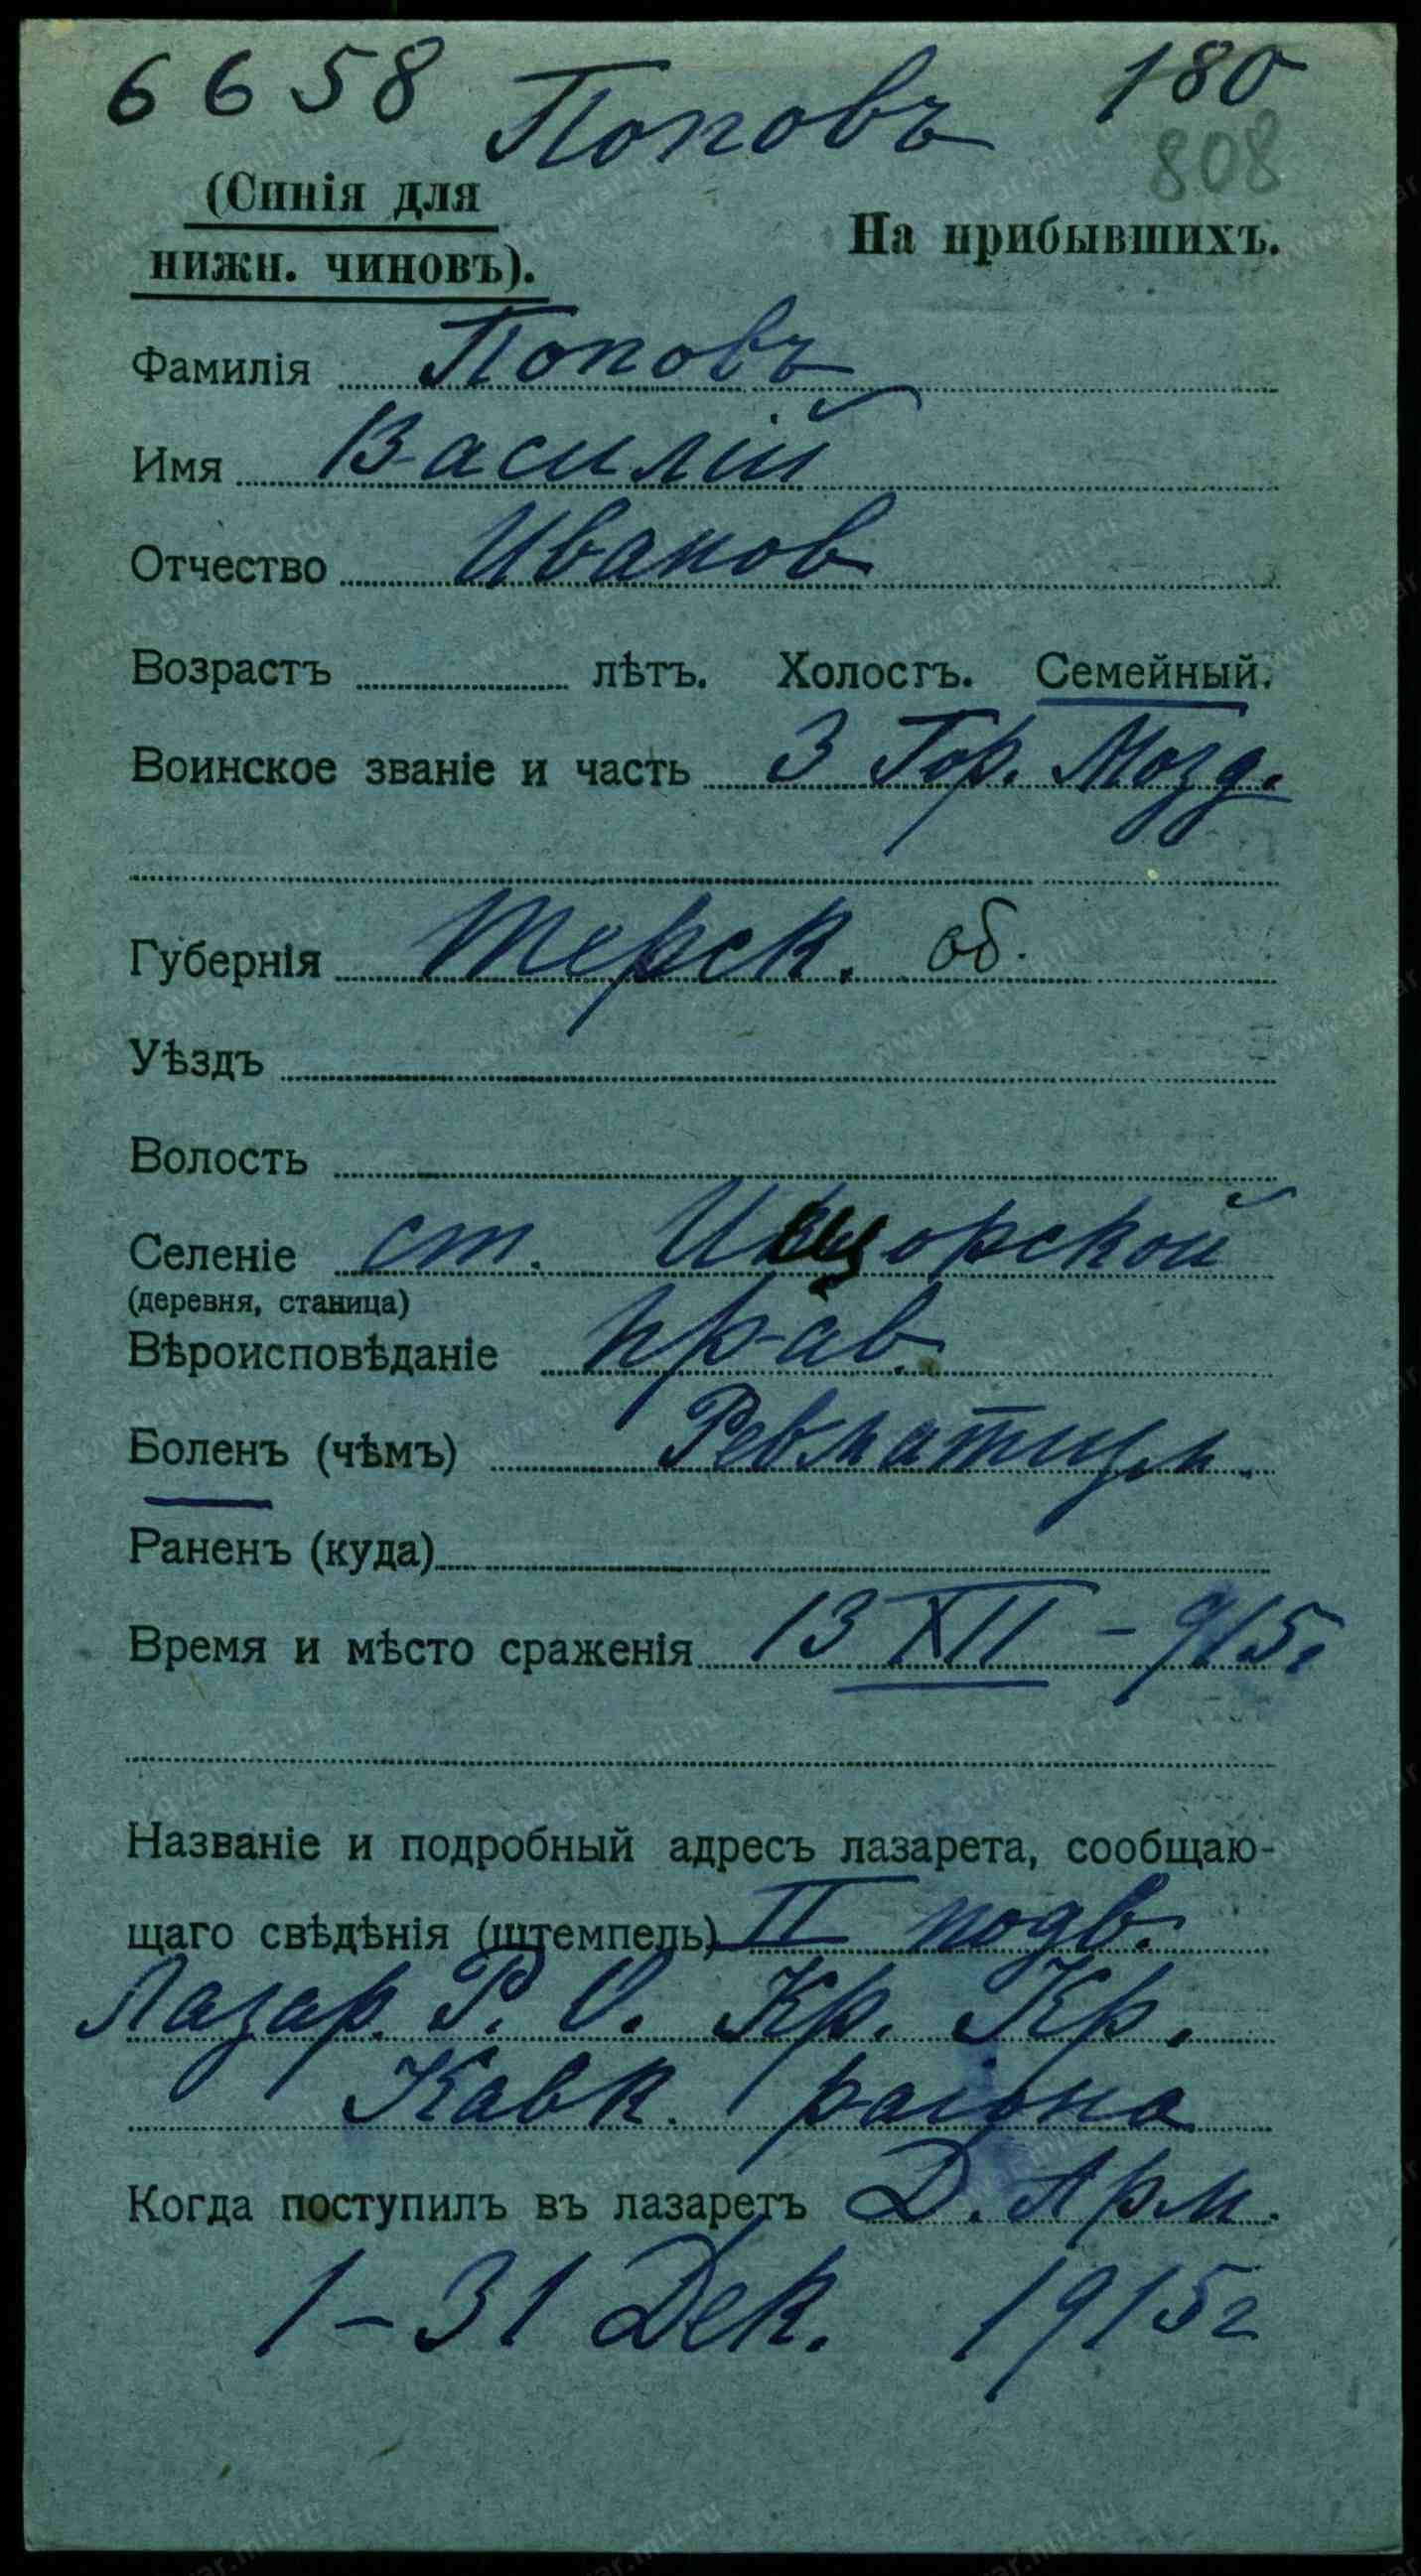 6658 Поповъ 180
808
(Синія для
нижн. чиновъ).
На прибывшихъ.
Фамилія Поповъ
Имя Василій
Отчество Иванов
Возрастъ лѣтъ. Холостъ. Семейный.
Воинское званіе и часть 3 Гор. Мозд.
Губернія Терск. об.
Уѣздъ
Волость
Селеніе ст. Ищорской
(деревня, станица)
Вѣроисповѣданіе прав.
Боленъ (чѣмъ) Ревматизм.
Раненъ (куда)
Время и мѣсто сраженія 13 XII - 915г
Названіе и подробный адресъ лазарета, сообщаю-
щаго свѣдѣнія (штемпель) II подв.
Лазар. Р. О. Кр. Кр.
Кавк. района
Когда поступилъ въ лазаретъ Д. Арм.
1-31 Дек. 1915г